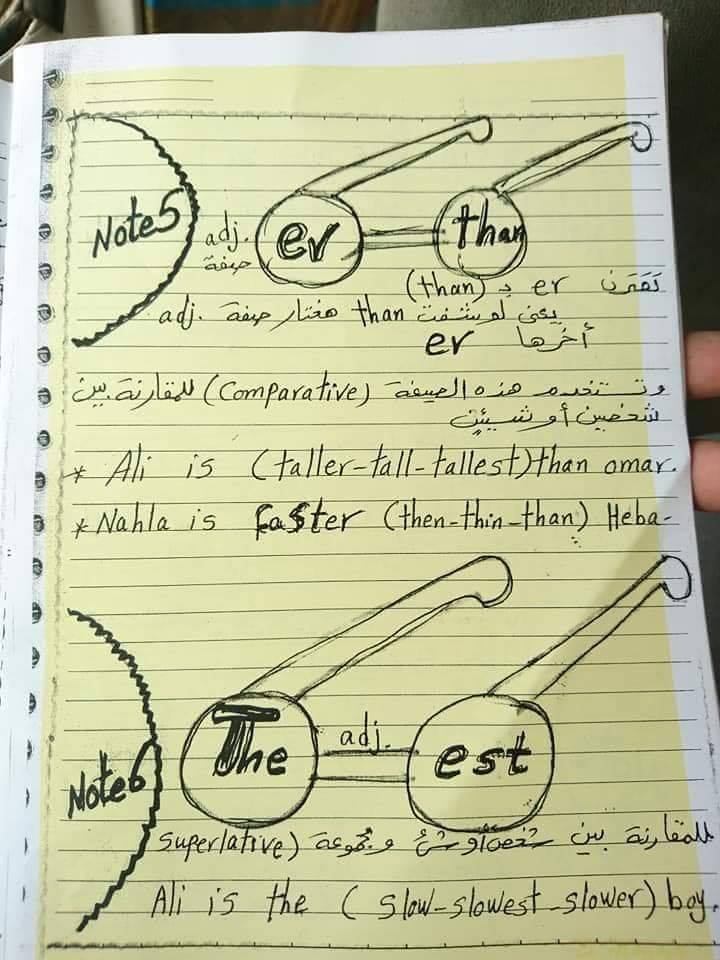 Note5
adj. er than
صفة
تقترن er بـ (than)
يعنى لو شفت than هختار صفة adj.
أخرها er
وتستخدم هذه الصيغة (Comparative) للمقارنة بين
شخصين أو شيئين
* Ali is (taller-tall-tallest) than omar.
* Nahla is faster (then-thin-than) Heba-
Note6
The adj. est
للمقارنة بين شخص أو شئ ومجموعة (superlative
Ali is the (slow-slowest-slower) boy.